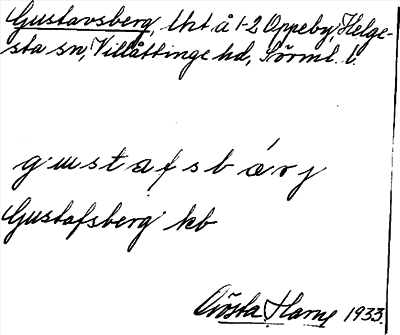 Gustavsberg, lht å 1-2 Oppeby, Helge-
sta sn, Villåttinge hd, Sörml. l.
gustafsbárj
Gustafsberg kb
Gösta Harne 1933.